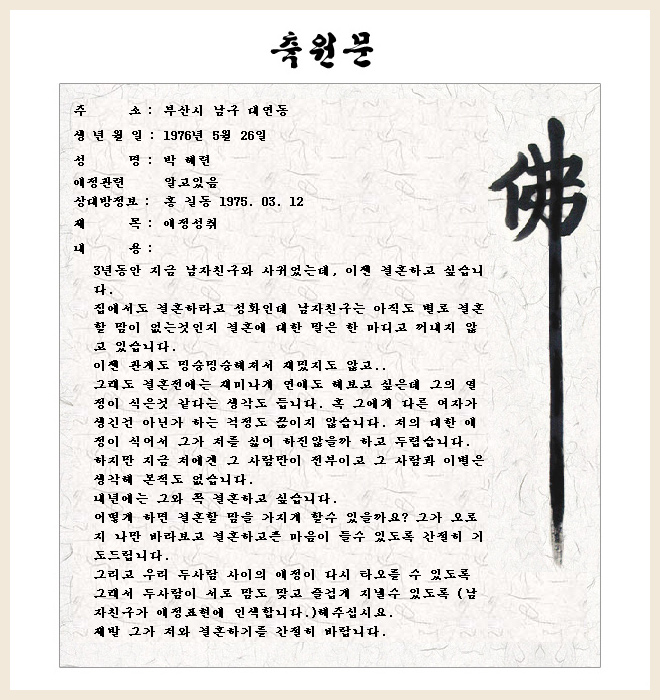 축원문
주 소 : 부산시 남구 대연동
생 년 월 일 : 1976년 5월 26일
성 명 : 박 혜련
애정관련 알고있음
상대방정보 : 홍 길동 1975. 03. 12
제 목 : 애정성취
내 용 :
3년동안 지금 남자친구와 사귀었는데, 이젠 결혼하고 싶습니
다.
집에서도 결혼하라고 성화인데 남자친구는 아직도 별로 결혼
할 맘이 없는것인지 결혼에 대한 말은 한 마디고 꺼내지 않
고 있습니다.
이젠 관계도 밍숭밍숭해져서 재밌지도 않고..
그래도 결혼전에는 재미나게 연애도 해보고 싶은데 그의 열
정이 식은것 같다는 생각도 듭니다. 혹 그에게 다른 여자가
생긴건 아닌가 하는 걱정도 끊이지 않습니다. 저의 대한 애
정이 식어서 그가 저를 싫어 하진않을까 하고 두렵습니다.
하지만 지금 저에겐 그 사람만이 전부이고 그 사람과 이별은
생각해 본적도 없습니다.
내년에는 그와 꼭 결혼하고 싶습니다.
어떻게 하면 결혼할 맘을 가지게 할수 있을까요? 그가 오로
지 나만 바라보고 결혼하고픈 마음이 들수 있도록 간절히 기
도드립니다.
그리고 우리 두사람 사이의 애정이 다시 타오를 수 있도록
그래서 두사람이 서로 맘도 맞고 즐겁게 지낼수 있도록 (남
자친구가 애정표현에 인색합니다.)해주십시요.
제발 그가 저와 결혼하기를 간절히 바랍니다.
佛